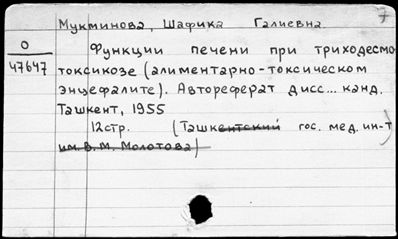 Мукминова, Шафика Галиевна
7
0
47647
Функции печени при триходесмо
токсикозе (алиментарно-токсическом
энцефалите). Автореферат дисс... канд.
Ташкент, 1955
12стр. (Ташкентский гос. мед. ин-т)
им. В. М. Молотова)